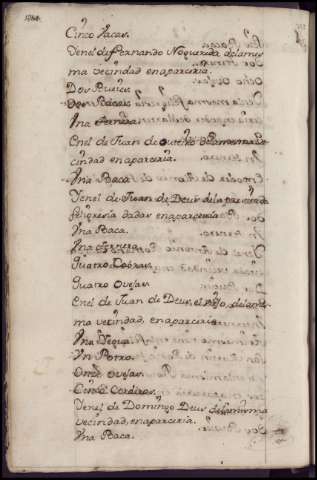 Cinco Bacas.
Yenel de Fernando Nogueríde dela mis
ma vecindad en aparceria.
Dos Bueies
Dos Bacas
Vna ternera
Enel de Juan de outeiro dela misma ve
cindad en aparceria.
Vna Baca
Yenel de Juan de Deus de la precitada
feligresia dadas en aparceria
Vna Baca.
Vna ternera.
Quatro Cabras.
Quatro ovejas
Enel de Juan de Deus, el viejo, dela mis
ma vecindad, en aparceria
Vna Yegua
Vn Potro.
Once ovejas.
Cinco Corderos.
Yenel de Domingo Deus dela misma
vecindad, en aparceria.
Vna Baca.